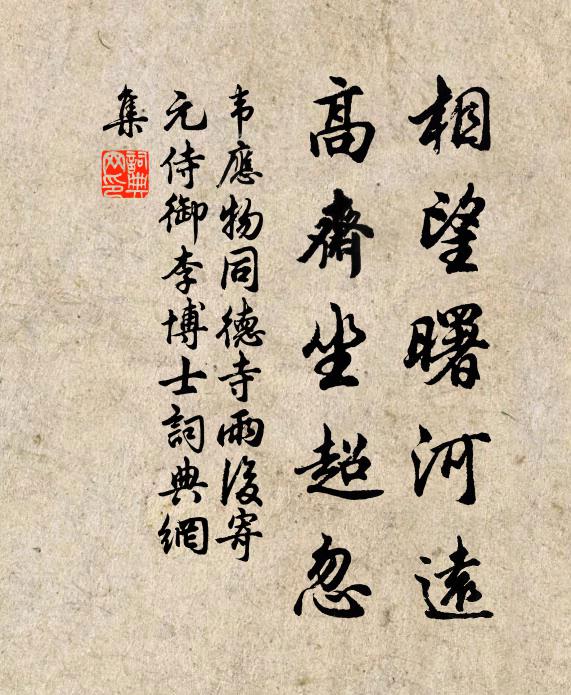 相望曙河遠
高齋坐超忽
韦應物同德寺雨後寄
元侍御李博士詞典網
集
詞典網印